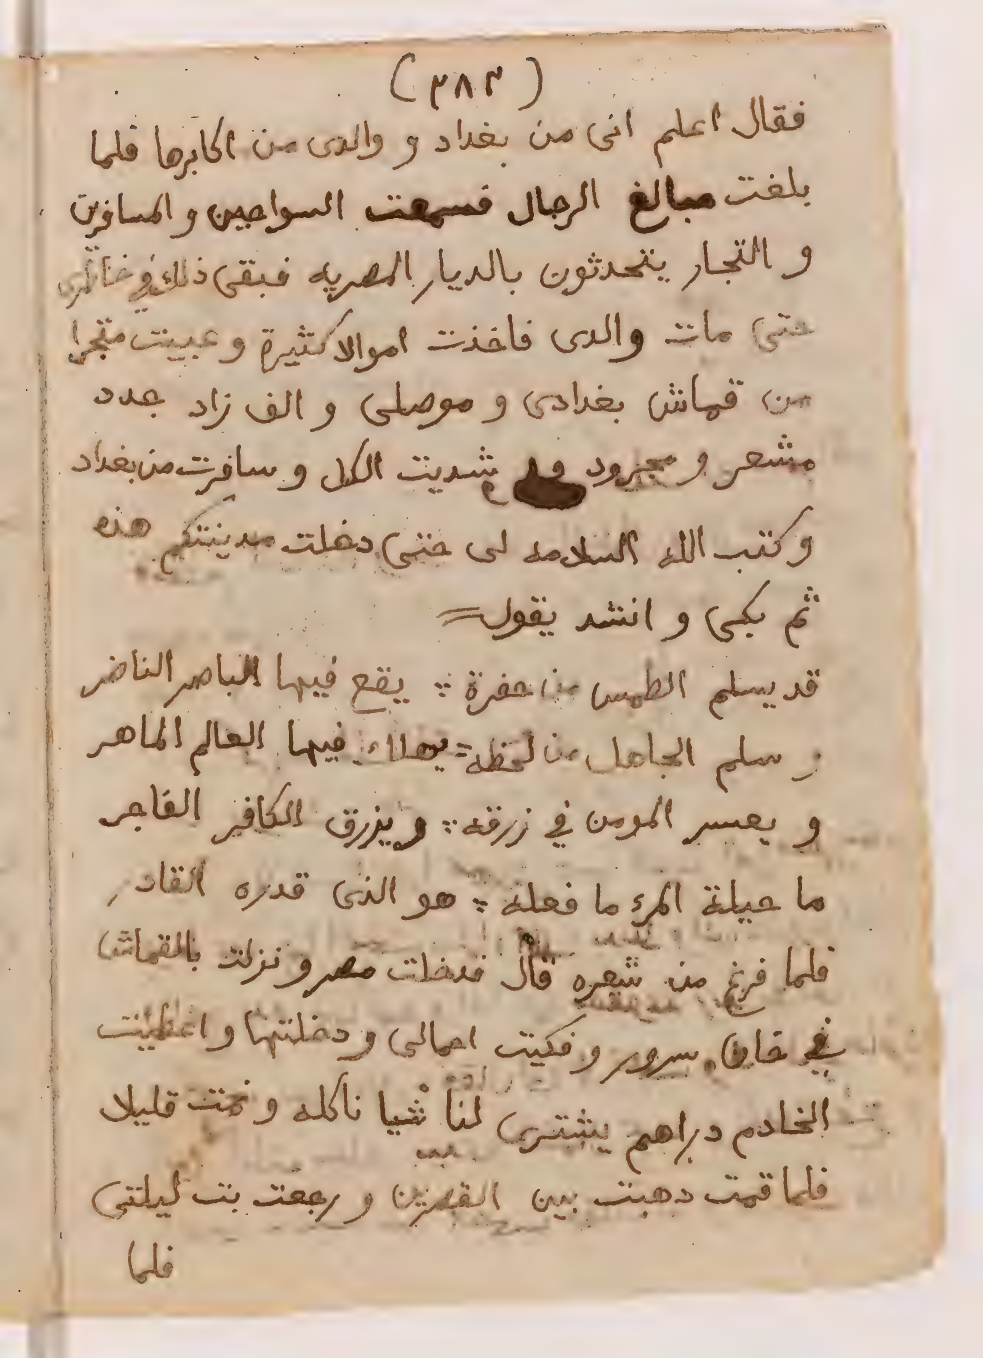 (٣٨٣)
فقال اعلم انى من بغداد و والدى من اكابرها فلما
بلغت مبالغ الرجال فسمعت السواحين و المسافرين
و التجار يتحدثون بالديار المصريه فبقى ذلك في خاطرى
حتى مات والدى فاخذت اموالا كثيرة و عبيت متجرا
من قماش بغدادى و موصلى و الف زاد جدد
مشعر و مجرود و شديت الكل و سافرت من بغداد
و كتب الله السلامه لى حتى دخلت مدينتكم هذه
ثم بكى و انشد يقول =
قد يسلم الطمس من حفرة ؞ يقع فيها الباصر الناضر
و سلم الجاهل من لحظه = يهلك فيها العالم الماهر
و يعسر المومن في زرقه ؞ و يزرق الكافر الفاجر
ما حيلة المرء ما فعله ؞ هو الذى قدره القادر
فلما فرغ من شعره قال فدخلت مصر و نزلت بالقماش
في خان سرور و فكيت احمالى و دخلتها و اعطيت
الخادم دراهم يشترى لنا شيا ناكله و نمت قليلا
فلما قمت دهبت بين القصرين و رجعت بت ليلتى
فلما